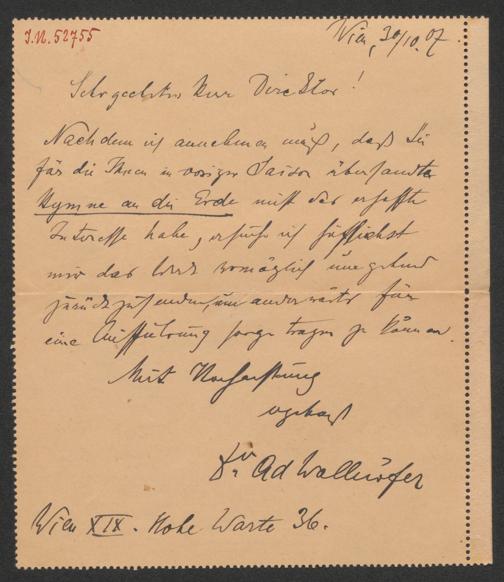 J.N. 52755
Wien, 30/10. 07
Sehr geehrter Herr Direktor!
Nachdem ich annehmen muß, daß Sie
für die Ihnen in voriger Saison übersandte
Hymne an die Erde nicht das erhoffte
Interesse habe, ersuche ich höflichst
mir das Werk womöglich umgehend
zurückzusenden, um anderwärts für
eine Aufführung sorge tragen zu können.
Mit Hochachtung
ergebenst
Dr. Ad Wallnöfer
Wien XIX. Hohe Warte 36.